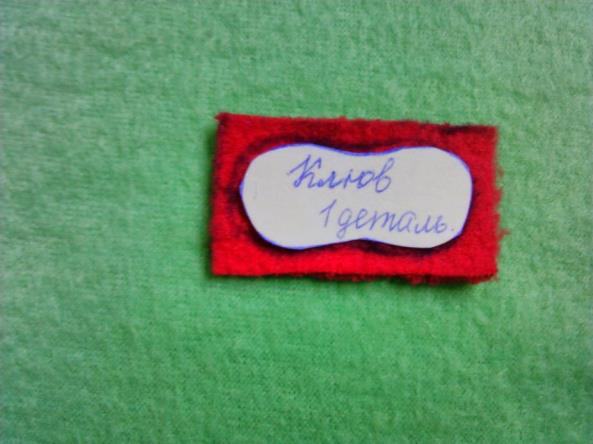 Клюв
1 деталь.